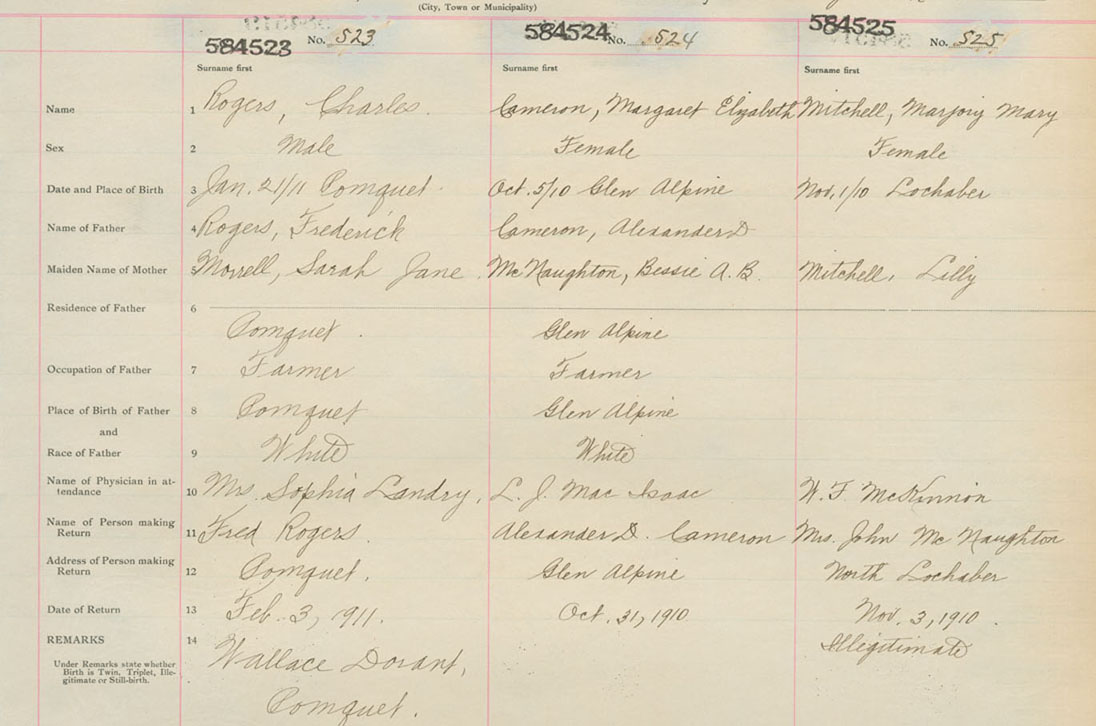 (City, Town or Municipality)
584523 No. 523
584524 No. 524
584525 No. 525
Surname first Surname first Surname first
Name 1 Rogers, Charles. Cameron, Margaret Elizabeth Mitchell, Marjory Mary
Sex 2 Male Female Female
Date and Place of Birth 3 Jan. 21/11 Pomquet. Oct. 5/10 Glen Alpine Nov. 1/10 Lochaber
Name of Father 4 Rogers, Frederick Cameron, Alexander D
Maiden Name of Mother 5 Morrell, Sarah Jane McNaughton, Bessie A. B. Mitchell, Lilly
Residence of Father 6
Pomquet. Glen Alpine
Occupation of Father 7 Farmer Farmer
Place of Birth of Father 8 Pomquet Glen Alpine
and
Race of Father 9 White White
Name of Physician in at-
tendance 10 Mrs. Sophia Landry, L. J. Mac Isaac W. F. McKinnon
Name of Person making
Return 11 Fred Rogers. Alexander D. Cameron Mrs. John McNaughton
Address of Person making
Return 12 Pomquet. Glen Alpine North Lochaber
Date of Return 13 Feb. 3, 1911. Oct. 31, 1910 Nov. 3, 1910.
REMARKS 14 Wallace Dorant, Illegitimate
Under Remarks state whether
Birth is Twin, Triplet, Ille-
gitimate or Still-birth.
Pomquet.